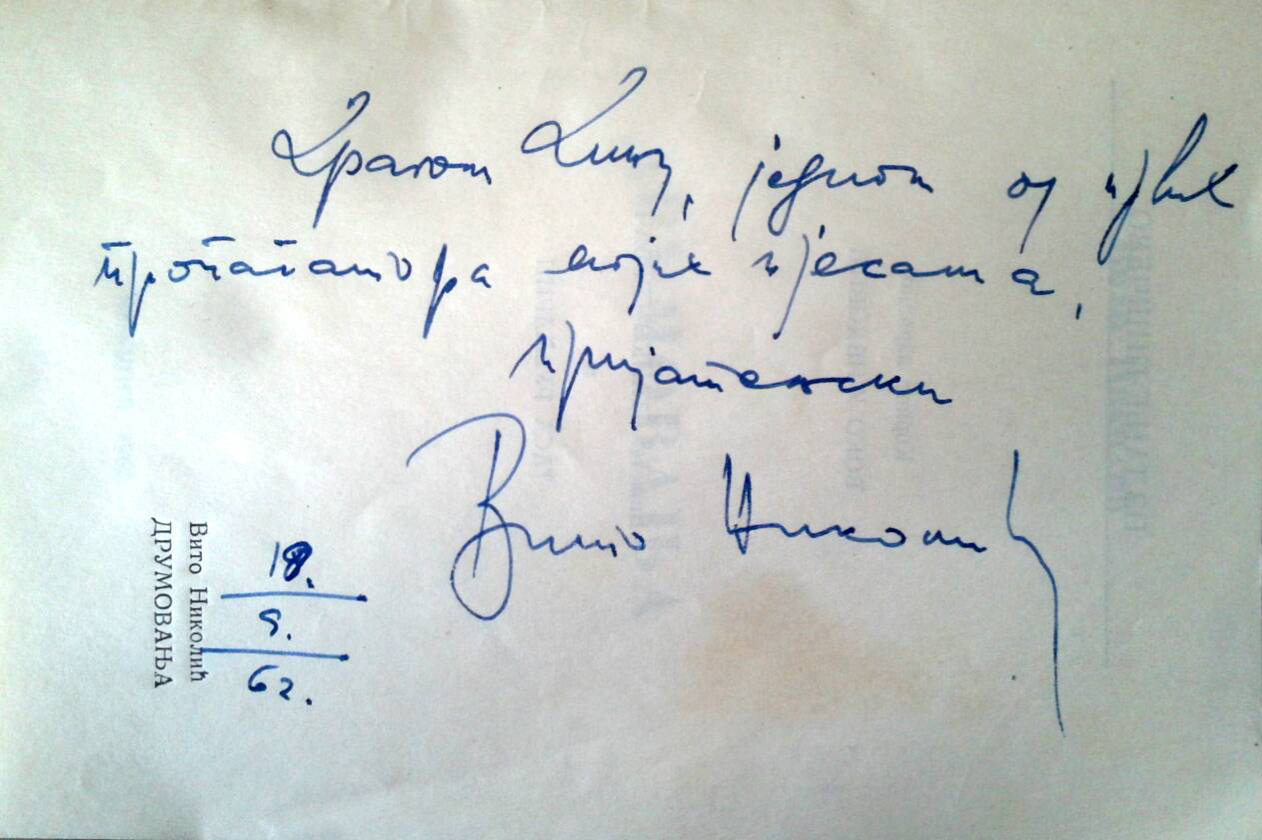 Драгом Дику, једном од првих
пропагатора мојих пјесама,
пријатељски
Вито Николић
18.
9.
62.
Вито Николић
ДРУМОВАЊА